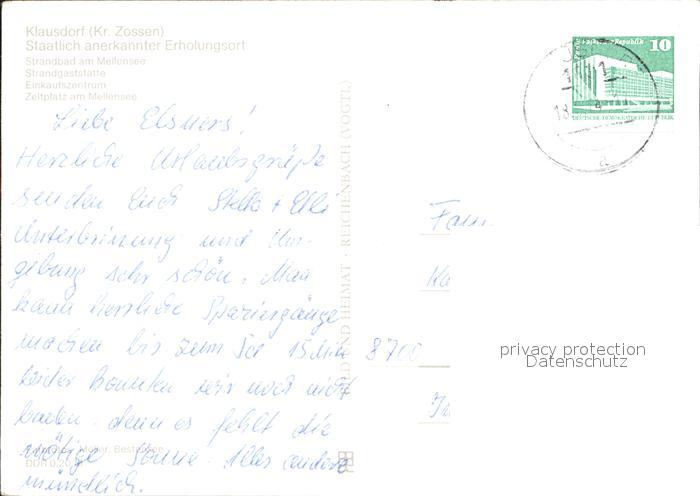 Klausdorf (Kr. Zossen)
Staatlich anerkannter Erholungsort
Strandbad am Mellensee
Strandgaststätte
Einkaufszentrum
Zeltplatz am Mellensee
Liebe Elsners!
Herzliche Urlaubsgrüße
senden Euch Stella + Elli
Unterbringung und Um-
gebung sehr schön. Man
kann herrliche Spaziergänge
machen bis zum See 15 Min
leider konnten wir noch nicht
baden. denn es fehlt die
nötige Sonne. Alles andere
mündlich.
DDR 0,20
BILD UND HEIMAT · REICHENBACH (VOGTL)
10
DEUTSCHE DEMOKRATISCHE REPUBLIK
18
a
Fam.
Ka
8700
privacy protection
Datenschutz